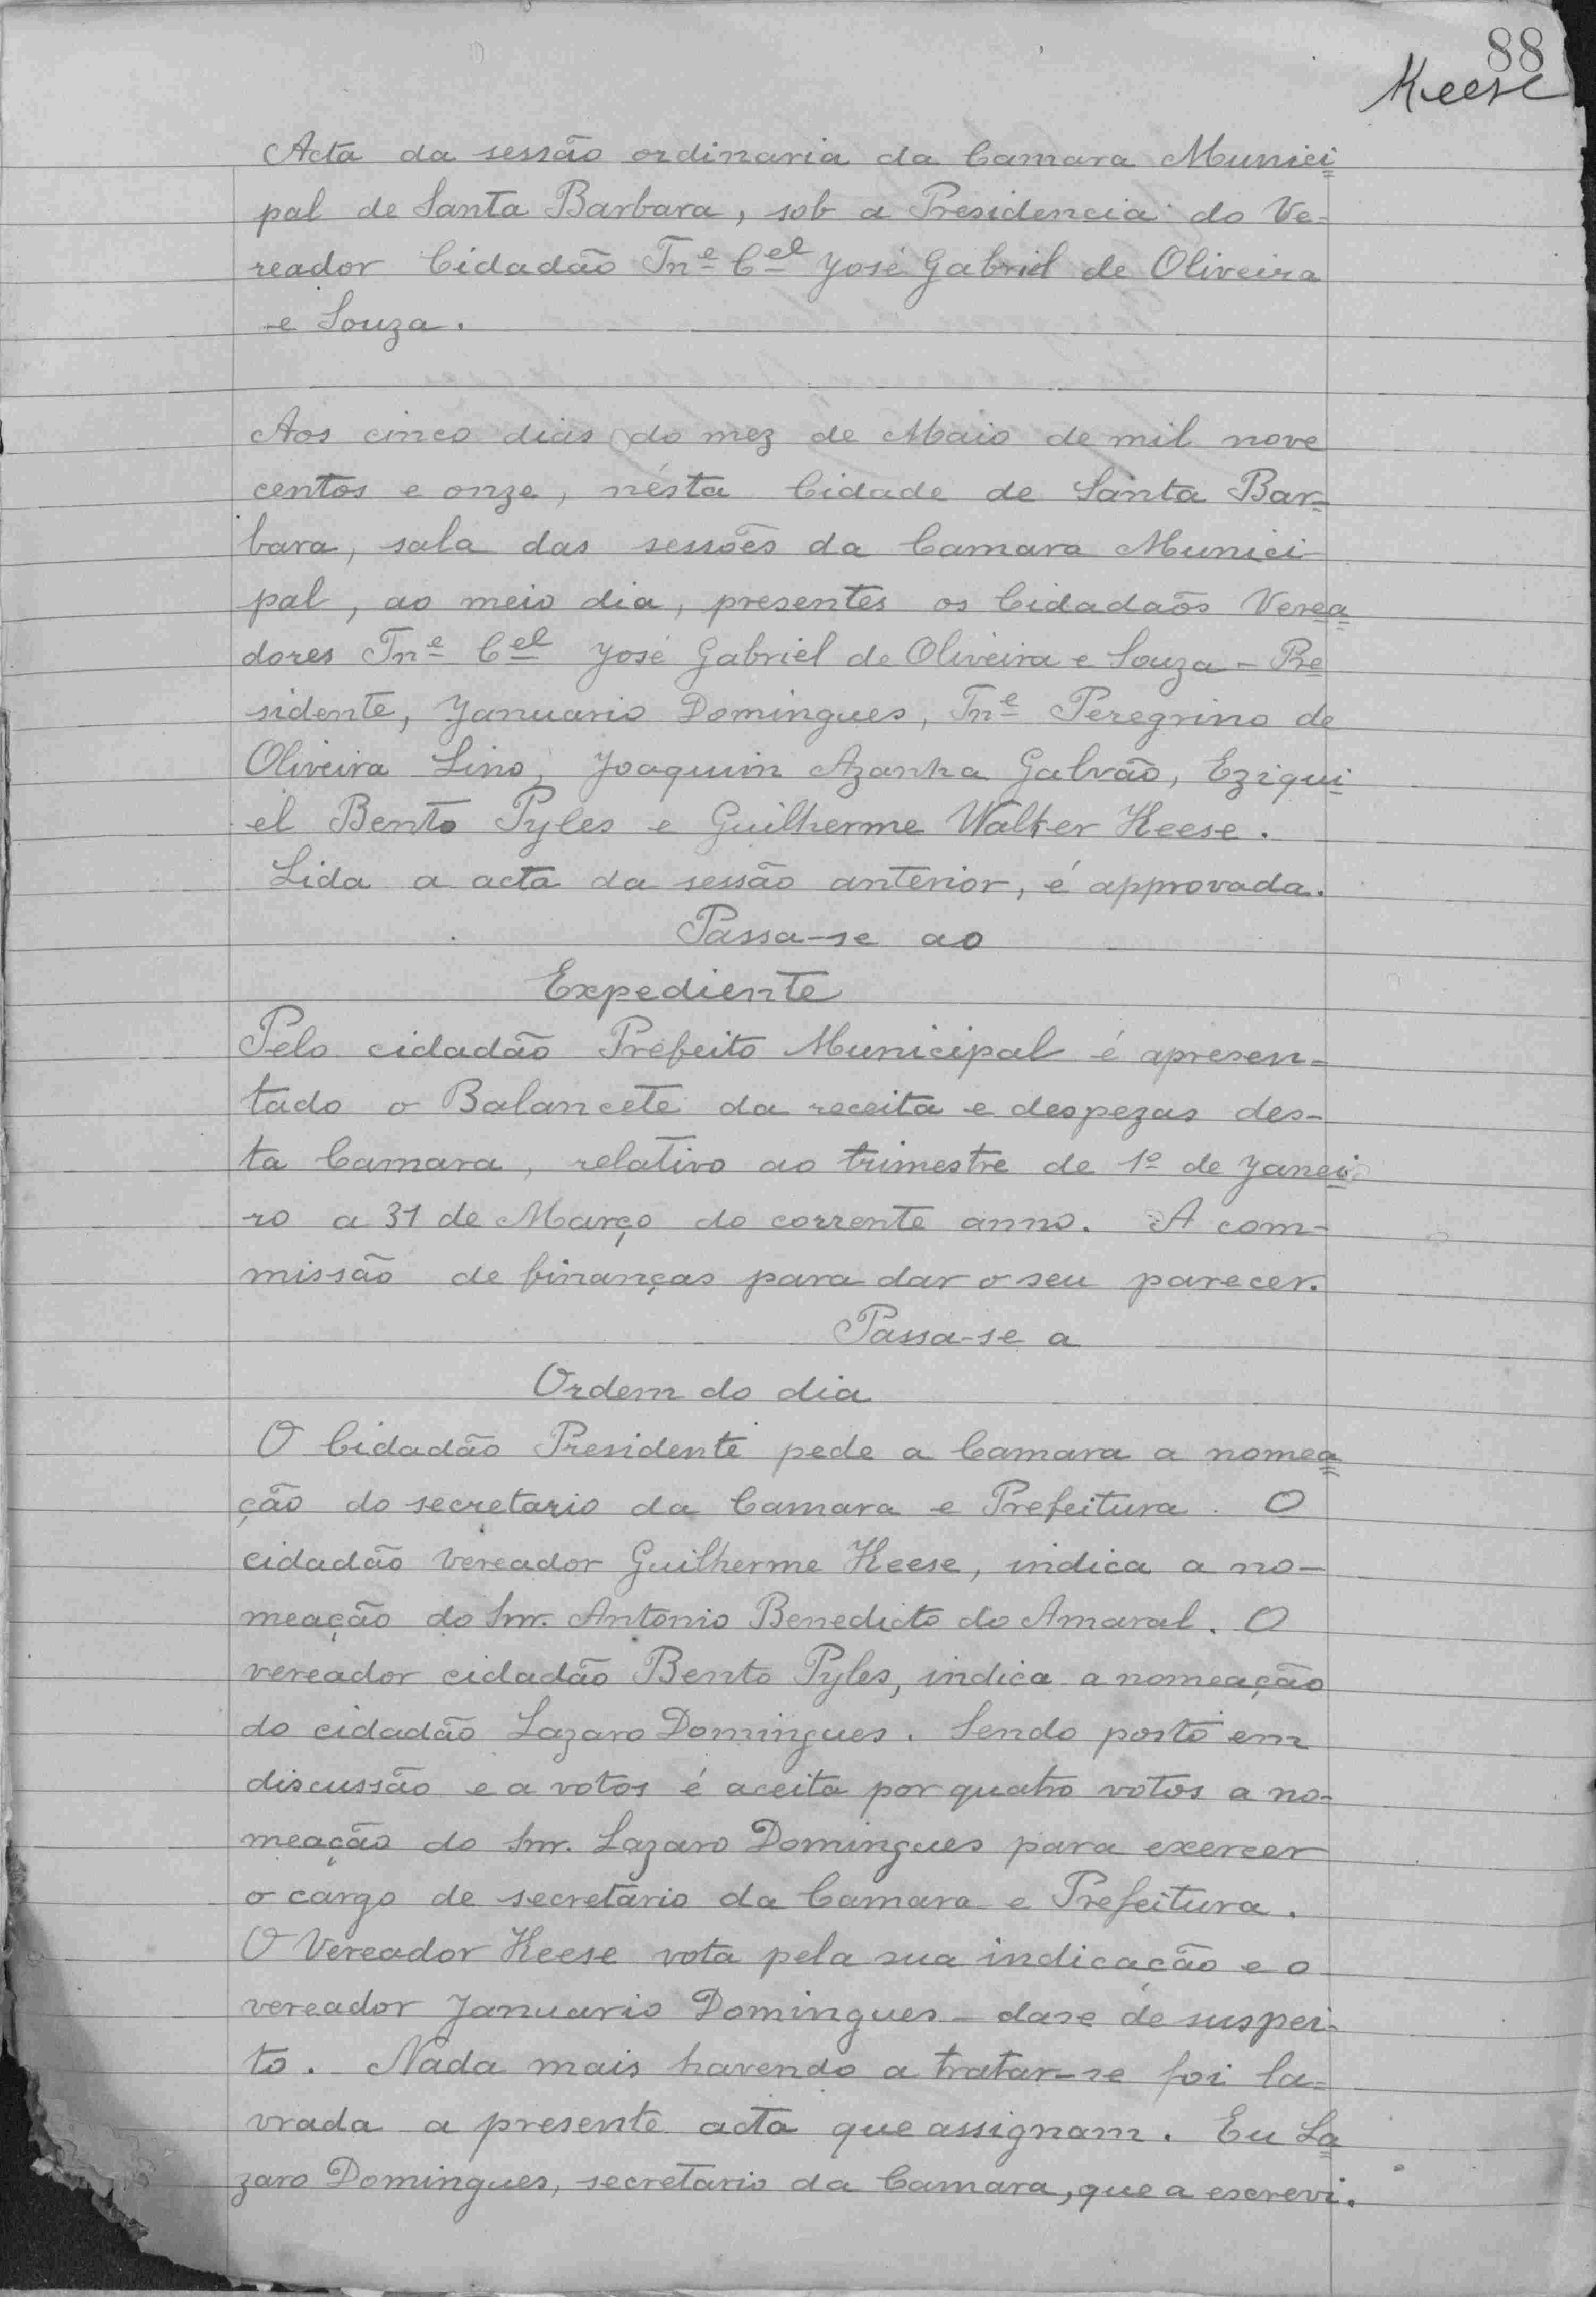 88
Keese
Acta da sessão ordinaria da Camara Munici
pal de Santa Barbara, sob a Presidencia do Ve-
reador Cidadão Tne Cel José Gabriel de Oliveira
e Souza.
Aos cinco dias do mez de Maio de mil nove
centos e onze, nésta Cidade de Santa Bar=
bara, sala das sessões da Camara Munici-
pal, ao meio dia, presentes os Cidadaõs Verea
dores Tne Cel José Gabriel de Oliveira e Souza - Pre
sidente, Januario Domingues, Tne Peregrino de
Oliveira Lino, Joaquim Azanha Galvão, Eziqui
el Bento Pyles e Guilherme Walker Keese.
Lida a acta da sessão anterior, é approvada.
Passa-se ao
Expediente
Pelo cidadão Prefeito Municipal é apresen=
tado o Balancete da receita e despezas des-
ta Camara, relativo ao trimestre de 1º de Janei
ro a 31 de Março do corrente anno. A com-
missão de finanças para dar o seu parecer.
Passa-se a
Ordem do dia
O Cidadão Presidente pede a Camara a nomea
ção do secretario da Camara e Prefeitura. O
cidadão Vereador Guilherme Keese, indica a no-
meação do Snr. Antonio Benedicto do Amaral. O
vereador cidadão Bento Pyles, indica a nomeação
do cidadão Lazaro Domingues. Sendo posto em
discussão e a votos é aceita por quatro votos a no-
meação do Snr. Lazaro Domingues para exercer
o cargo de secretario da Camara e Prefeitura.
O Vereador Keese vota pela sua indicação e o
vereador Januario Domingues - dase de suspei-
to. Nada mais havendo a tratar-se foi la=
vrada a presente acta que assignam. Eu La
zaro Domingues, secretario da Camara, que a escrevi.